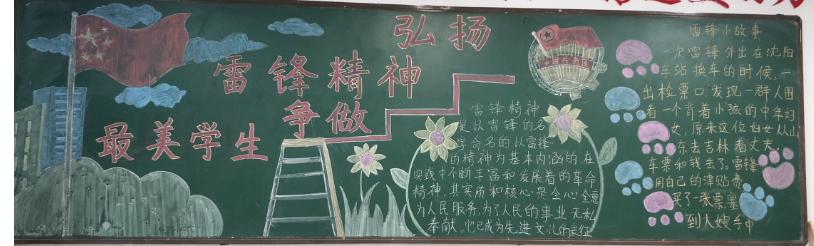 弘扬
雷锋精神
争做
最美学生
雷锋精神
是以雷锋的名
字命名的以雷锋
的精神为基本内涵的在
实践中不断丰富和发展着的革命
精神,其实质和核心是全心全意
为人民服务,为了人民的事业无私
奉献。它已成为先进文化的表征
雷锋小故事
一次雷锋外出在沈阳
车站换车的时候,一
出检票口,发现一群人围
看一个背着小孩的中年妇
女,原来这位妇女从山
东去吉林看丈夫,
车票和钱丢了。雷锋
用自己的津贴费
买了一张票塞
到大嫂手中